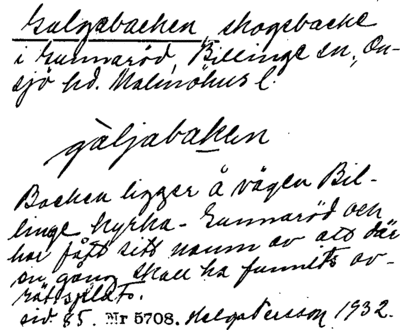 Galgebacken, skogsbacke
i Gunnaröd, Billinge sn, On-
sjö hd. Malmöhus l.
gàljabaken
Backen ligger å vägen Bil-
linge kyrka - Gunnaröd och
har fått sitt namn av att där
en gång skall ha funnits av-
rättsplats.
sid. 85. Nr 5708. Helga Persson 1932.